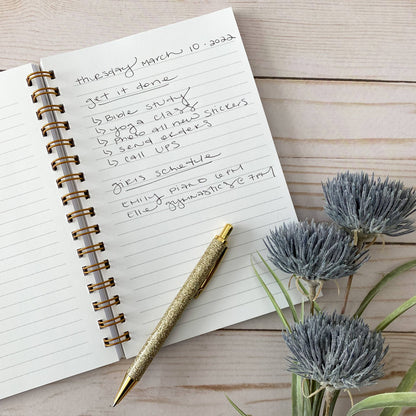 thursday march 10.2022
get it done
↳ Bible study
↳ yoga class
↳ photo all new stickers
↳ send orders
↳ call UPS
girls schedule
Emily piano 6 pm
Elle gymnastics @ 7pm